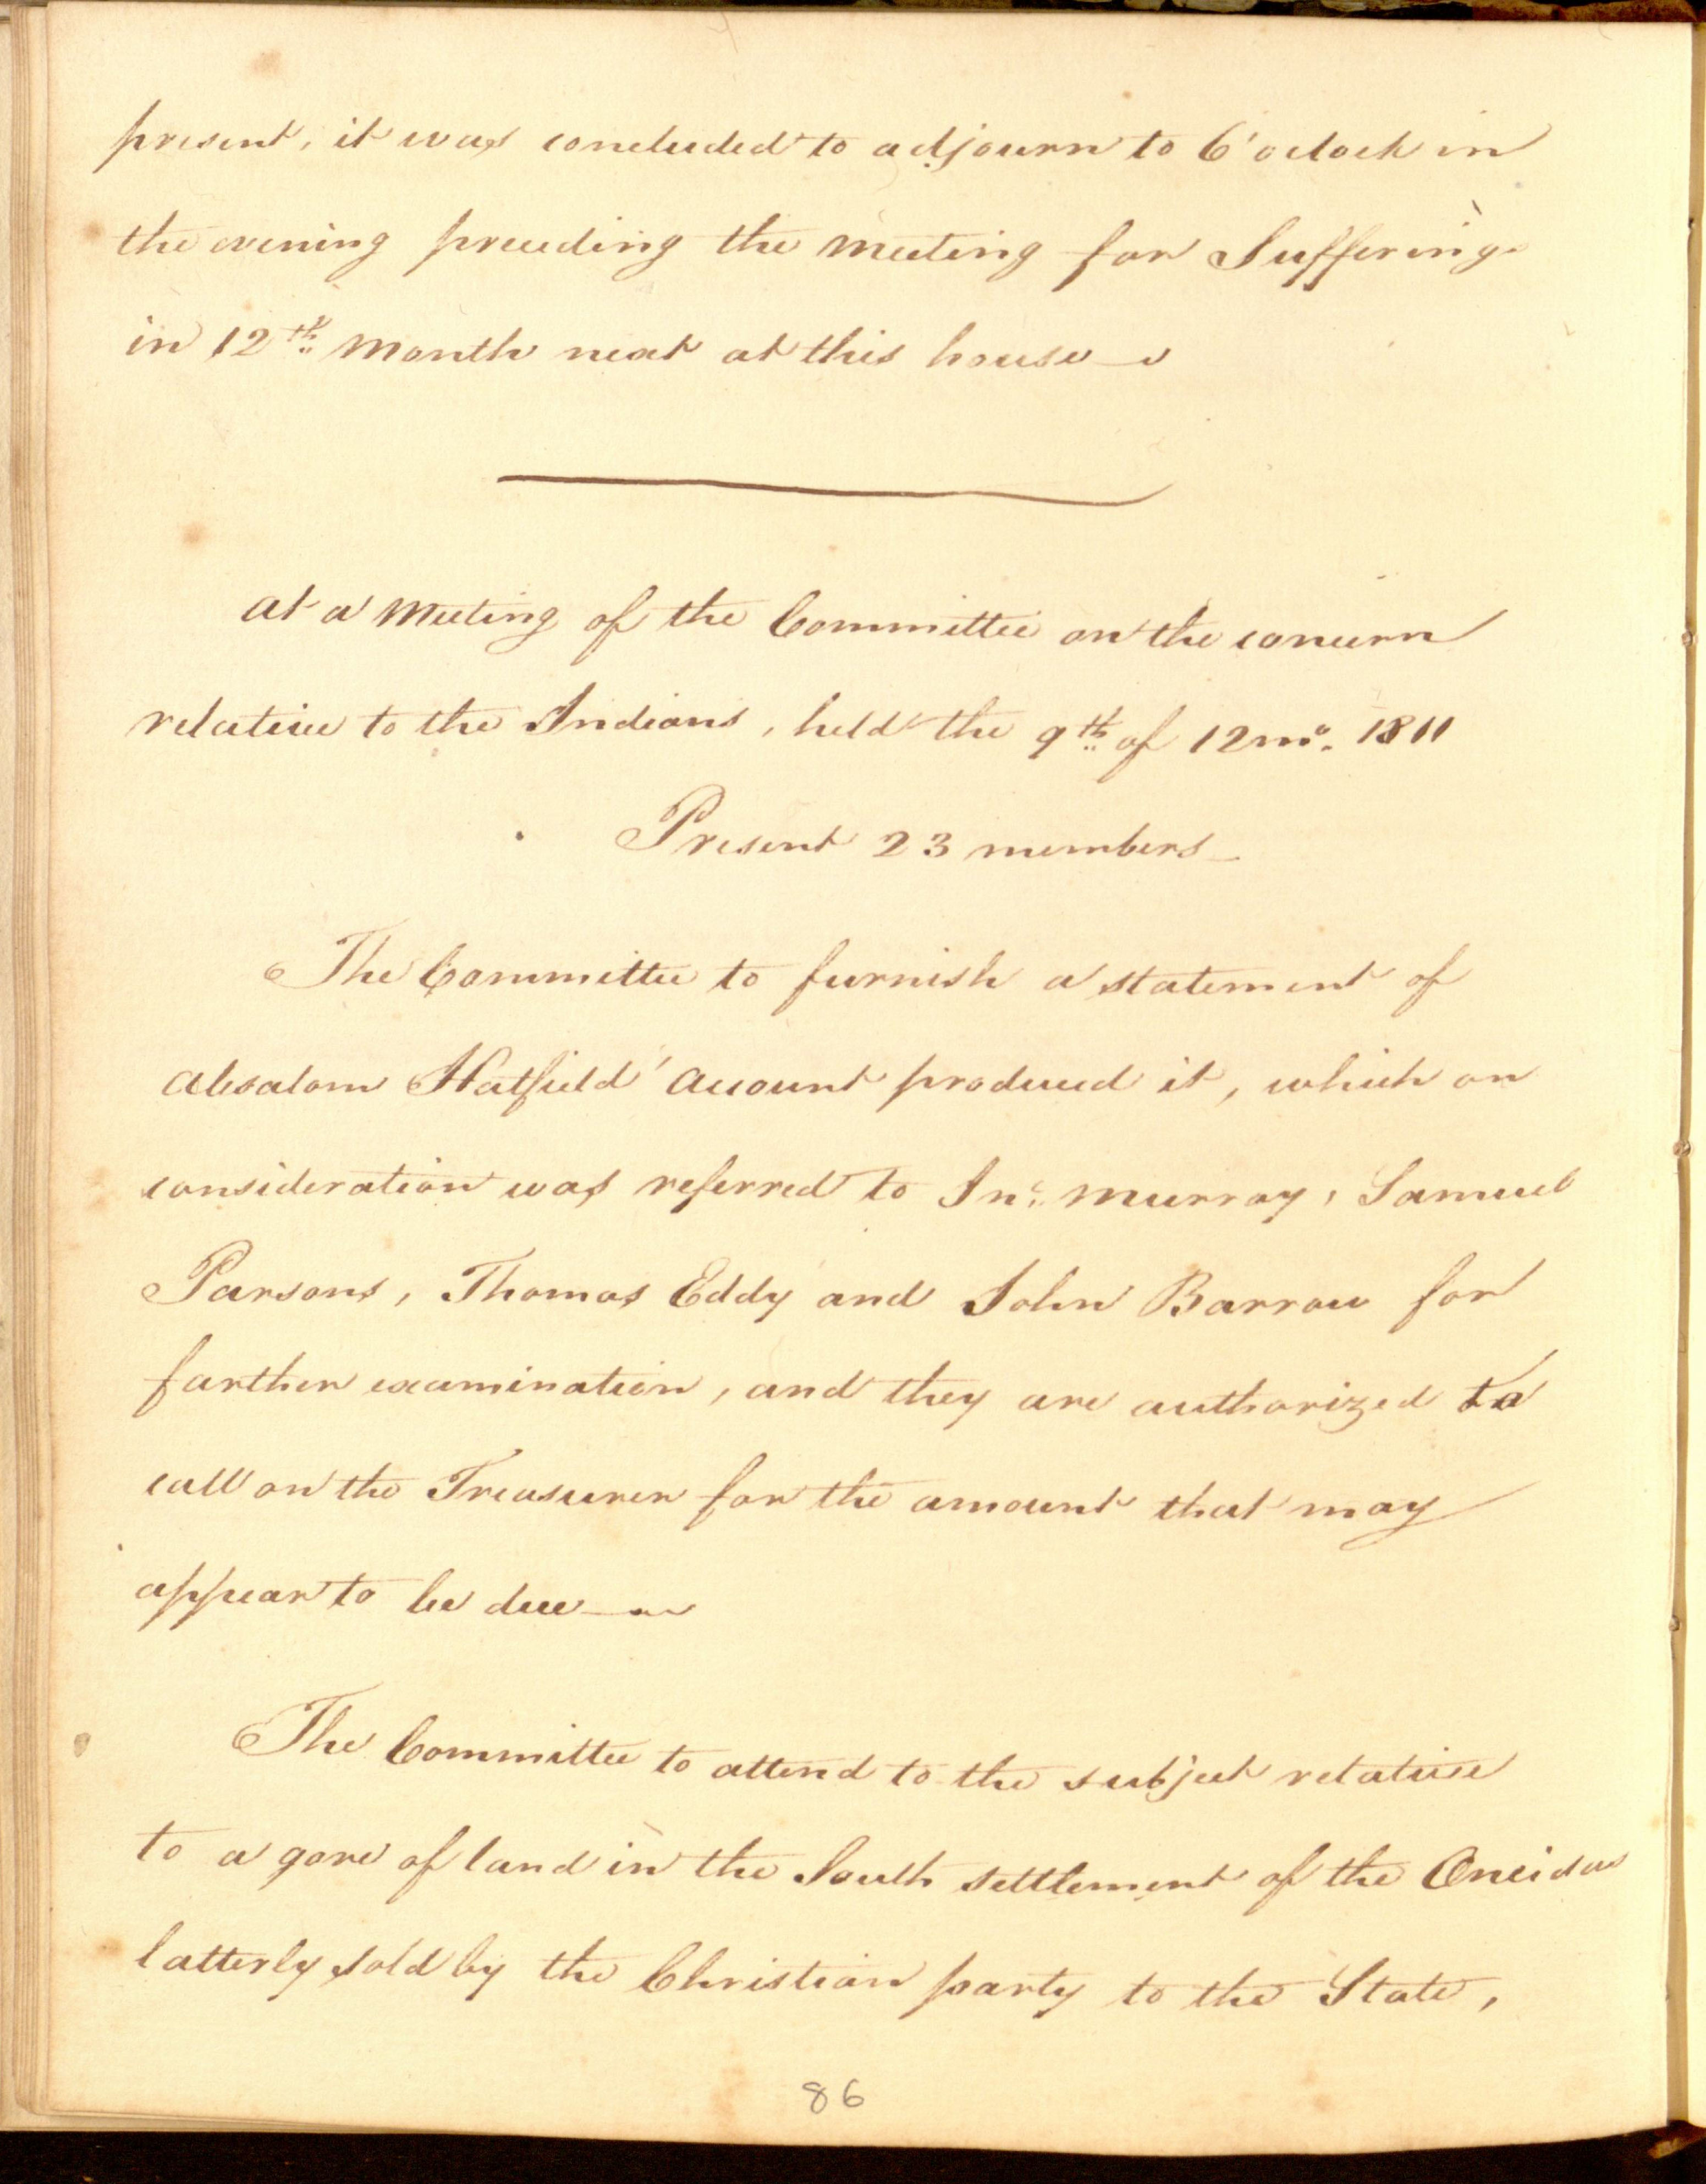 present, it was concluded to adjourn to 6 'oclock in
the evening preceding the meeting for Sufferings
in 12th. month next at this house
At a meeting of the Committee on the concern
relative to the Indians, held the 9th. of 12mo. 1811
Present 23 members
The Committee to furnish a statement of
Absalom Hatfield' account produced it, which on
consideration was referred to Jno. Murray, Samuel
Parsons, Thomas Eddy and John Barrow for
farther examination, and they are authorized to
call on the Treasurer for the amount that may
appear to be due
The Committee to attend to the subject relative
to a gore of land in the South settlement of the Oneidas
latterly sold by the Christian party to the State,
86